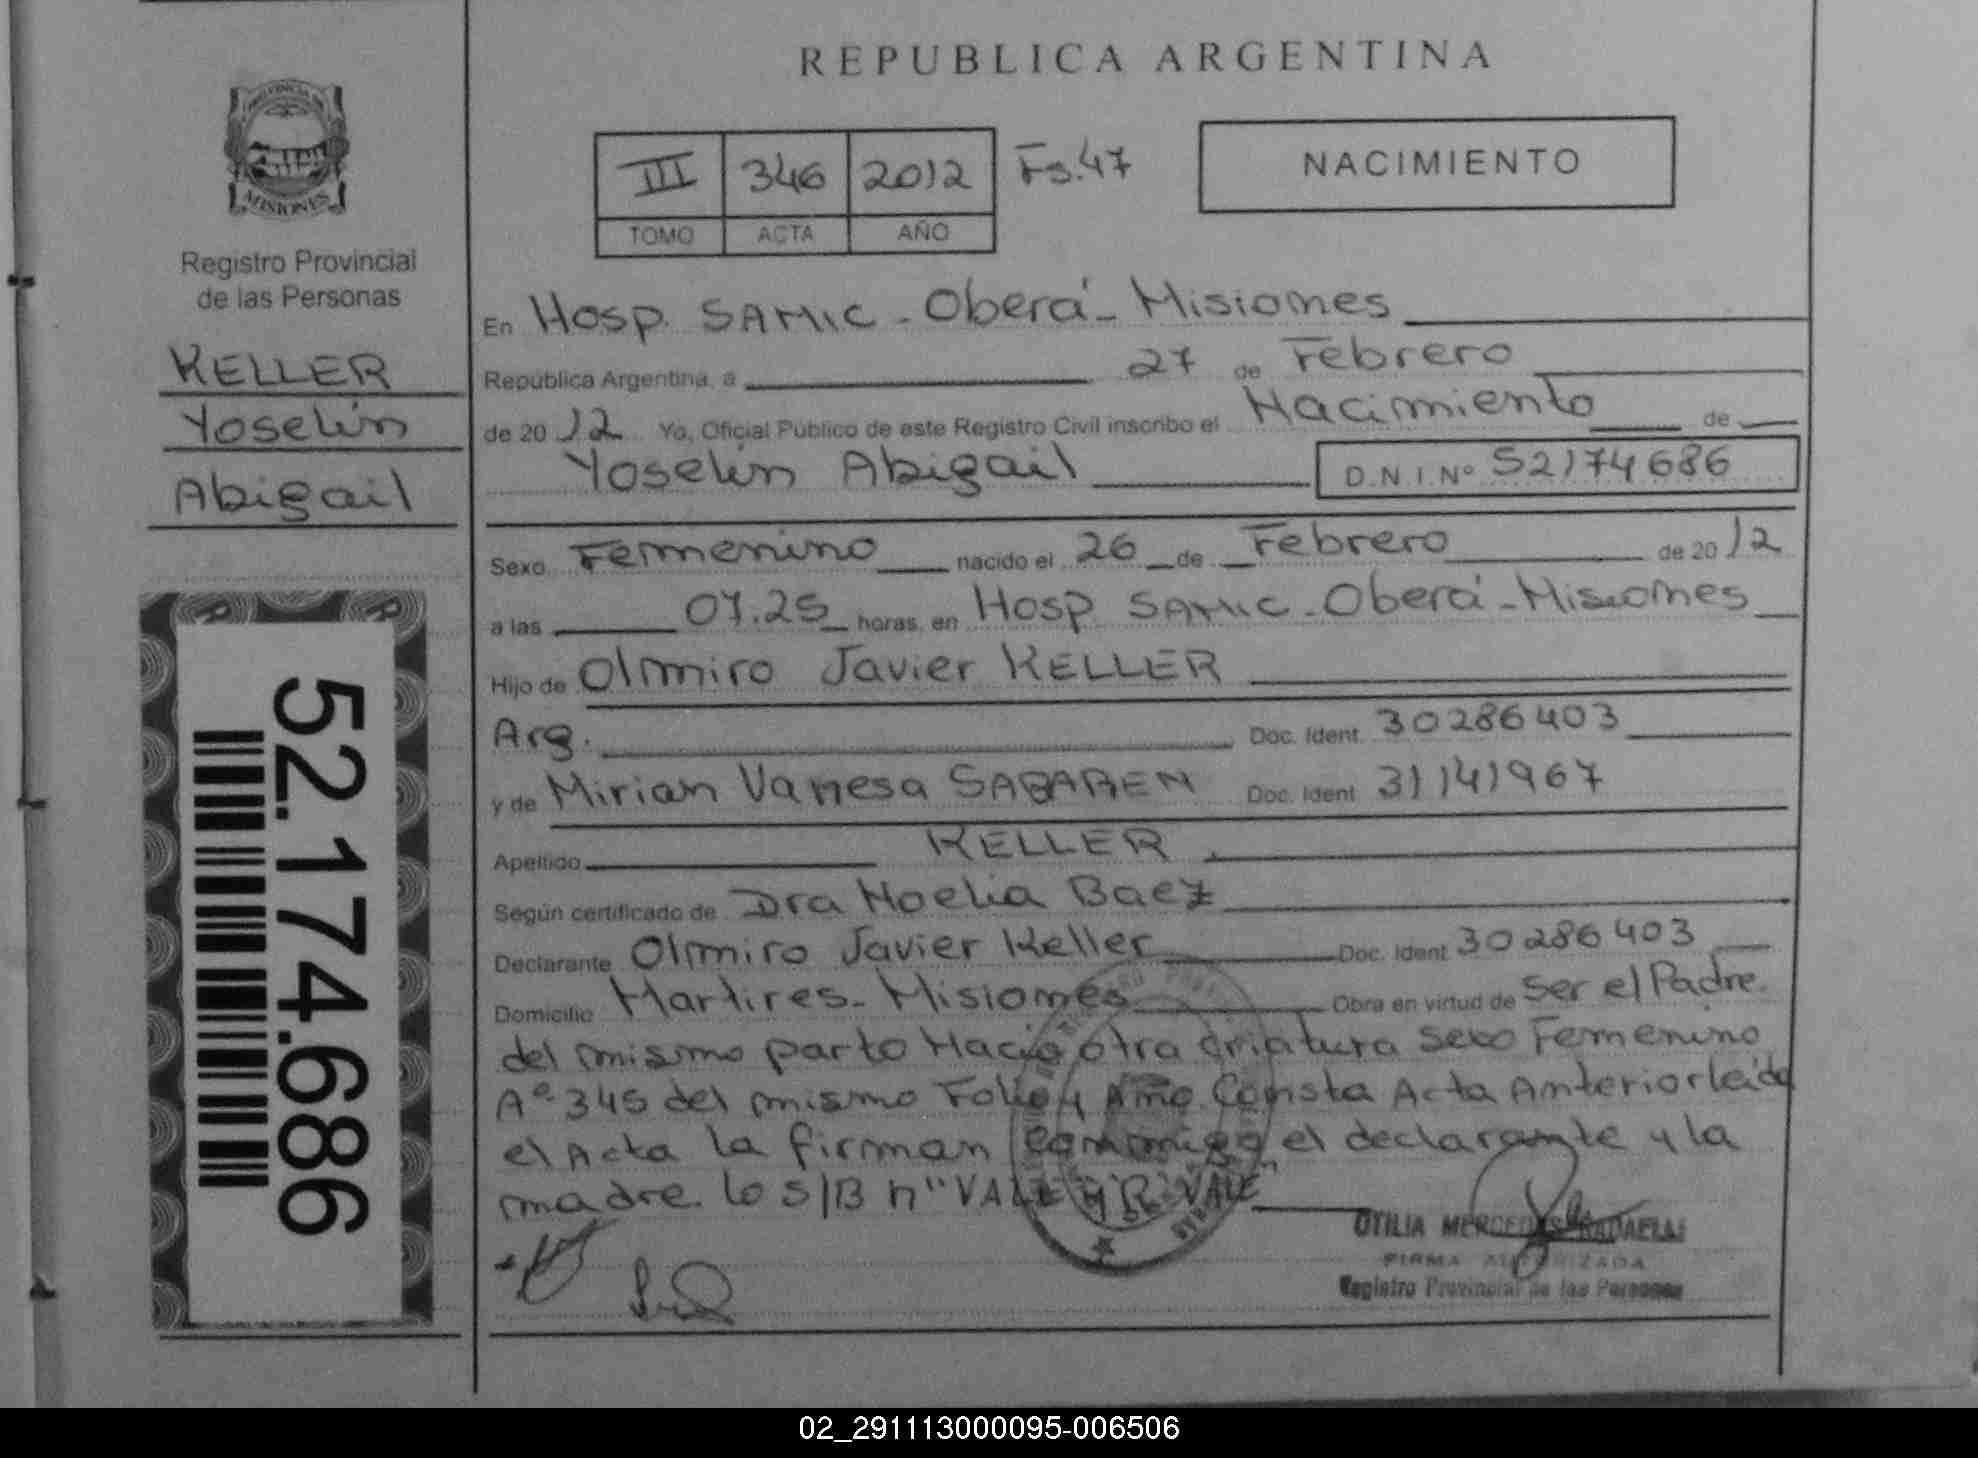 REPUBLICA ARGENTINA
PROVINCIA DE
MISIONES
Registro Provincial
de las Personas
KELLER
Yoselin
Abigail
52.174.686
III 346 2012 Fs.47
TOMO ACTA AÑO
NACIMIENTO
En Hosp. SAMIC - Oberá - Misiones
República Argentina, a 27 de Febrero
de 2012 Yo, Oficial Público de este Registro Civil inscribo el Nacimiento de
Yoselin Abigail D.N.I.Nº 52174686
Sexo Femenino nacido el 26 de Febrero de 2012
a las 07.25 horas, en Hosp. SAMIC - Oberá - Misiones
Hijo de Olmiro Javier KELLER
Arg. Doc. Ident. 30286403
y de Mirian Vanesa Doc. Ident. 31141967
Apellido KELLER
Según certificado de Dra Noelia Baez
Declarante Olmiro Javier Keller Doc. Ident. 30286403
Domicilio Martires - Misiones Obra en virtud de Ser el Padre.
del mismo parto Nació otra criatura sexo Femenino
Aº 345 del mismo Folio y Año. Consta Acta Anterior leída
el Acta la firman conmigo el declarante y la
madre. lo s/B n "VALE y R. VALE"
OTILIA MERCEDES RADAELLI
FIRMA AUTORIZADA
Registro Provincial de las Personas
02_291113000095-006506